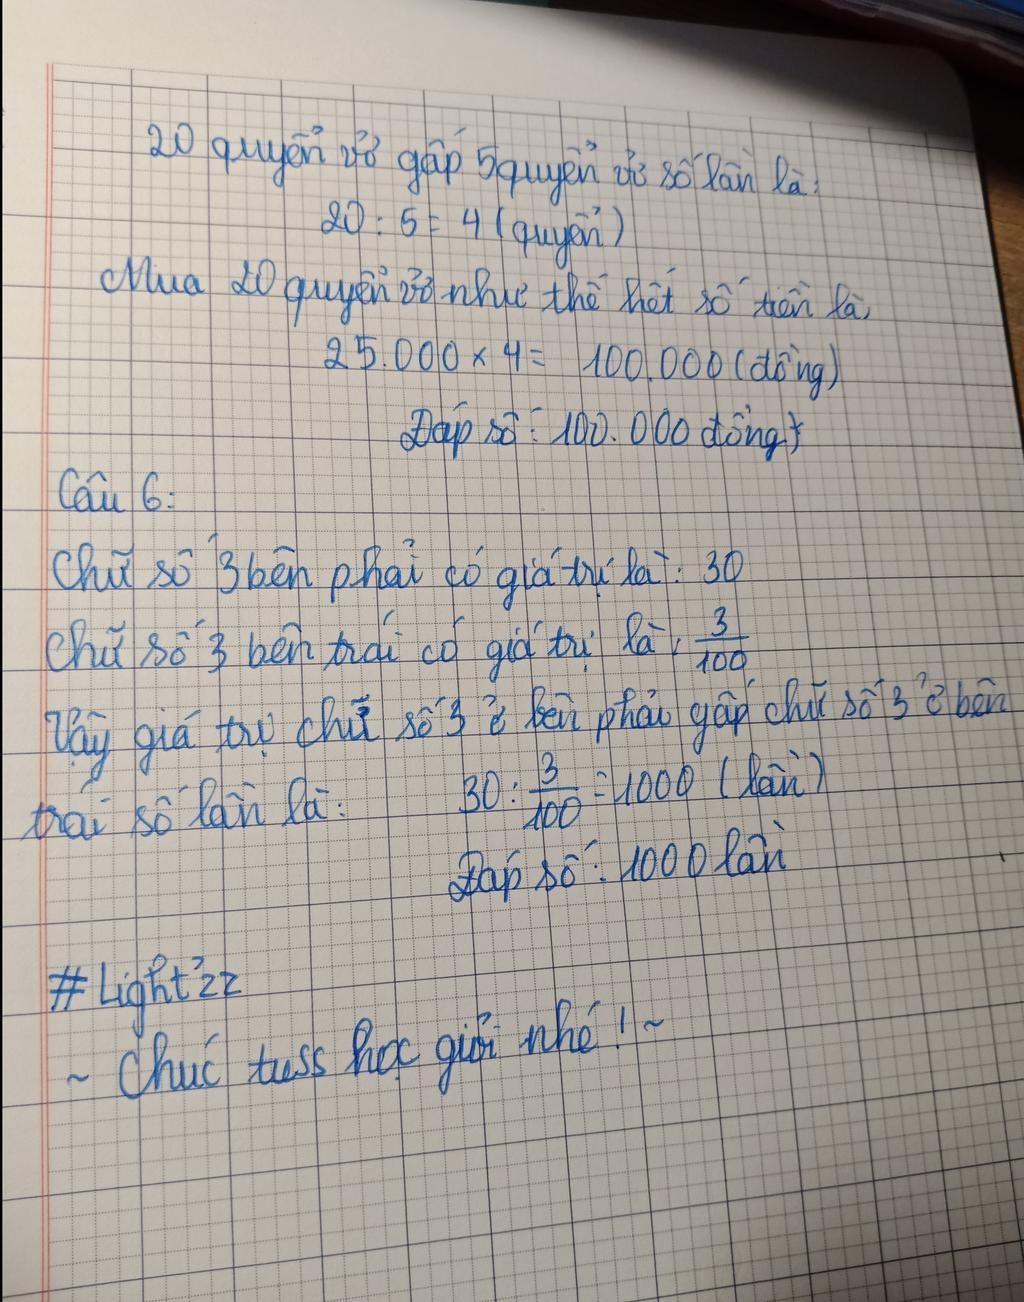 20 quyển vở gấp 5 quyển vở số lần là:
20 : 5 = 4 (quyển)
Mua 20 quyển vở như thế hết số tiền là,
25.000 × 4 = 100.000 (đồng)
Đáp số: 100.000 đồng
Câu 6:
Chữ số 3 bên phải có giá trị là: 30
Chữ số 3 bên trái có giá trị là, 3/100
Vậy giá trị chữ số 3 ở bên phải gấp chữ số 3 ở bên
trái số lần là: 30 : 3/100 = 1000 (lần)
Đáp số: 1000 lần
#Light'zz
~ Chúc tuss học giỏi nhé! ~